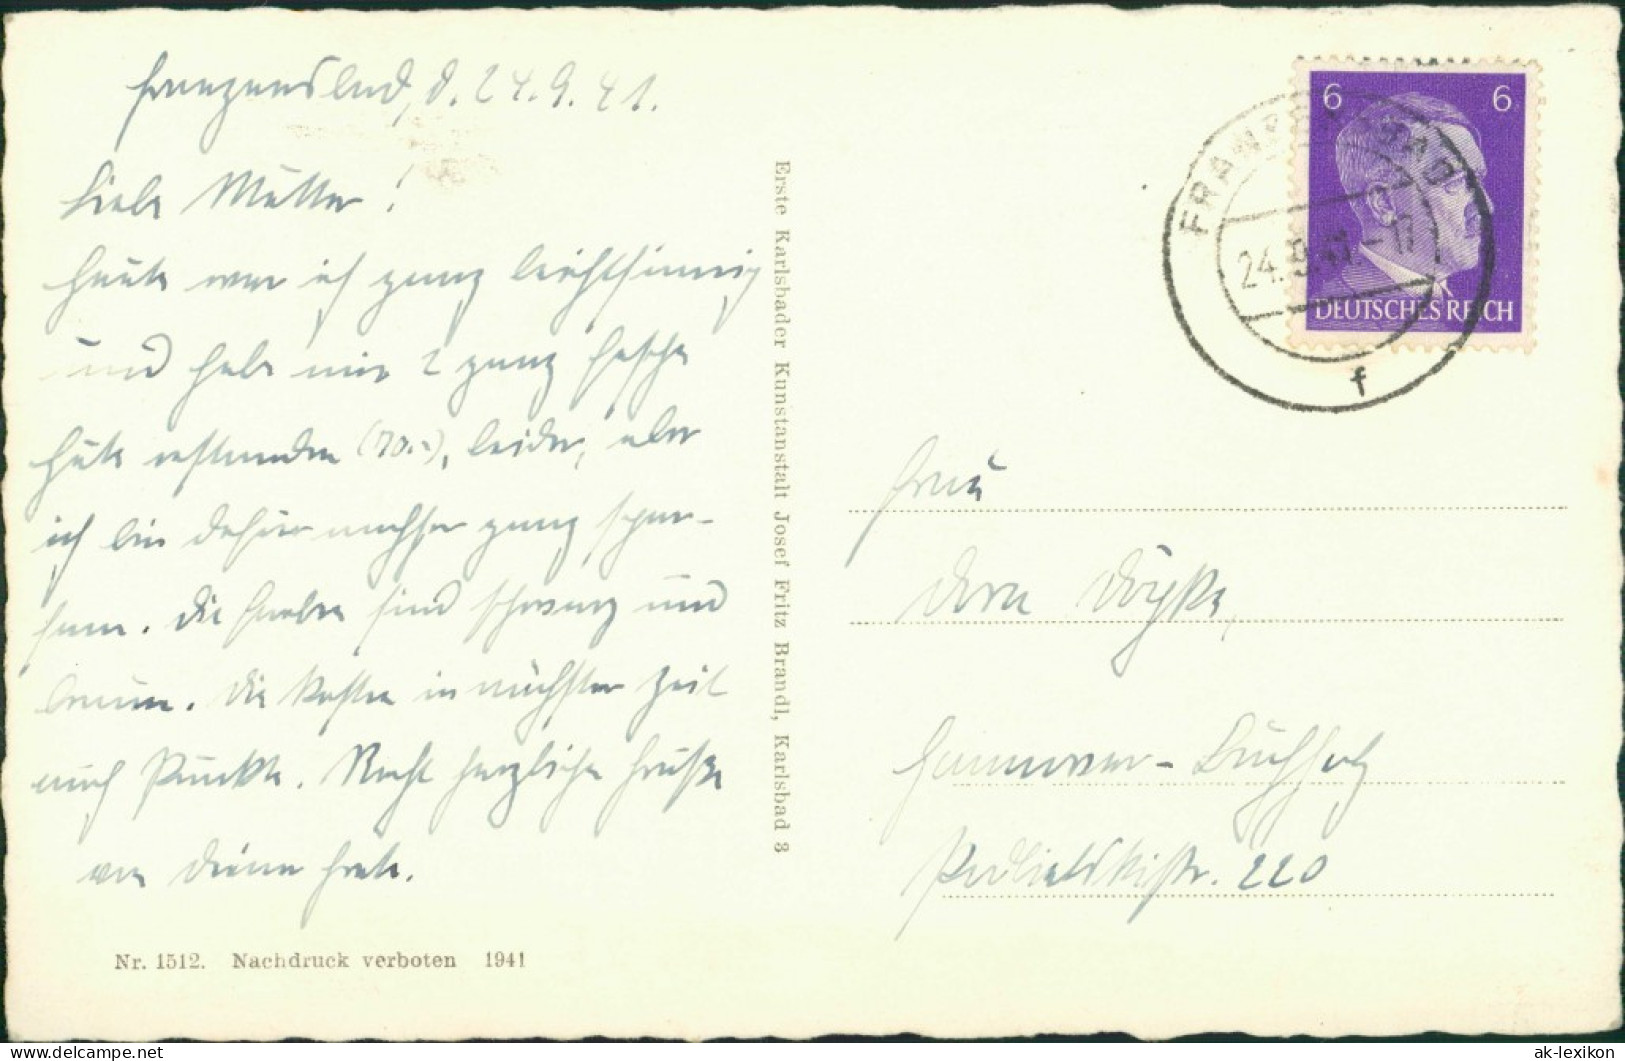 Franzensbad, d. 24.9.41.
Liebe Mutter!
Heute war ich ganz leichtsinnig
und habe mir 2 ganz fesche
Hüte erstanden (70.-), leider, aber
ich bin dafür nachher ganz spar-
sam. Die Farben sind schwarz und
braun. Die kosten in nächster Zeit
auch Punkte. Recht herzliche Grüße
von Deiner Grete.
Nr. 1512. Nachdruck verboten 1941
Erste Karlsbader Kunstanstalt Josef Fritz Brandl, Karlsbad 3
6 6
DEUTSCHES REICH
FRANZENSBAD
24.9.41.-17
f
Frau
Dora
Hannover-Buchholz
Podbielskistr. 220
ak-lexikon
www.delcampe.net